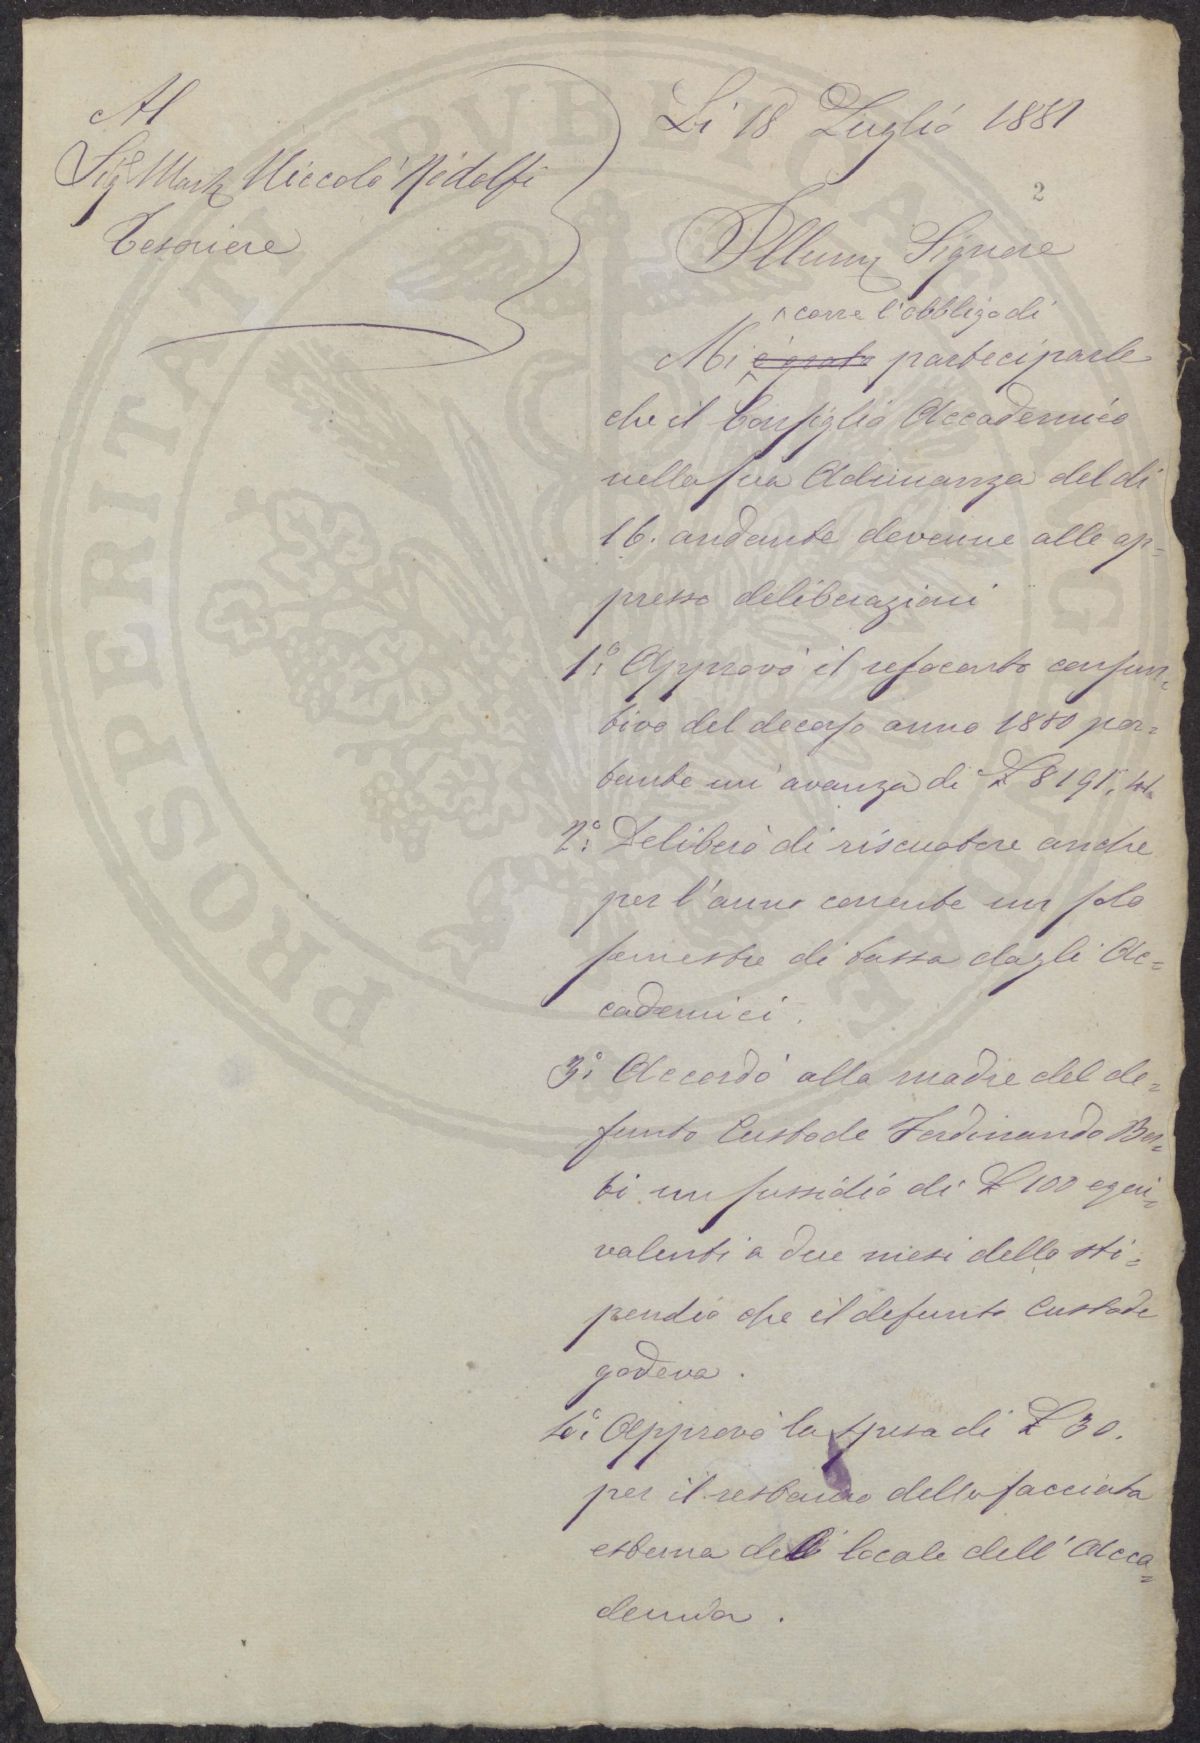 Al
Sig.e March. Niccolò Ridolfi
Tesoriere
Li 18 Luglio 1881
2
Illumo Signore
corre l'obbligo di
Mi è grato parteciparle
che il Consiglio Accademico
nella sua Adunanza del di
16. andante devenne alle ap=
presso deliberazioni
1° Approvò il resoconto consun=
tivo del decorso anno 1880 por=
tante un' avanzo di £ 8191,44
2° Deliberò di riscuotere anche
per l'anno corrente un solo
semestre di tassa dagli Ac=
cademici.
3° Accordò alla madre del de=
funto Custode Ferdinando
ti un sussidio di £ 100 equi=
valenti a due mesi dello sti=
pendio che il defunto Custode
godeva.
4° Approvò la spesa di £ 30.
per il restauro della facciata
esterna del locale dell' Acca=
demia.
PROSPERITATI PVBLICAE AVGENDAE